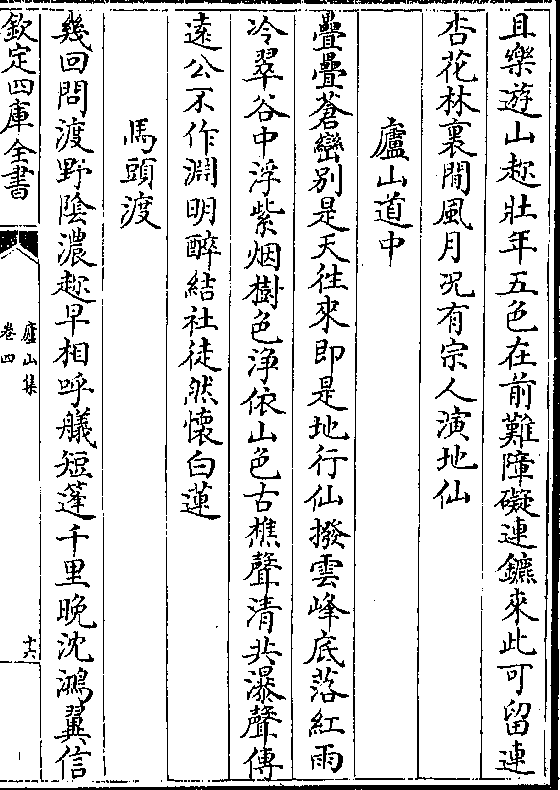 且樂遊山趂壯年五色在前難障礙連鑣來此可留連
杏花林裏閒風月况有宗人演地仙
廬山道中
疊疊蒼巒别是天往來即是地行仙撥雲峰底落紅雨
冷翠谷中浮紫烟樹色浄依山色古樵聲清共瀑聲傳
遠公不作淵明醉結社徒然懷白蓮
馬頭渡
幾回問渡野陰濃趂早相呼艤短篷千里晚沈鴻翼信
欽定四庫全書
廬山集
卷四
十六